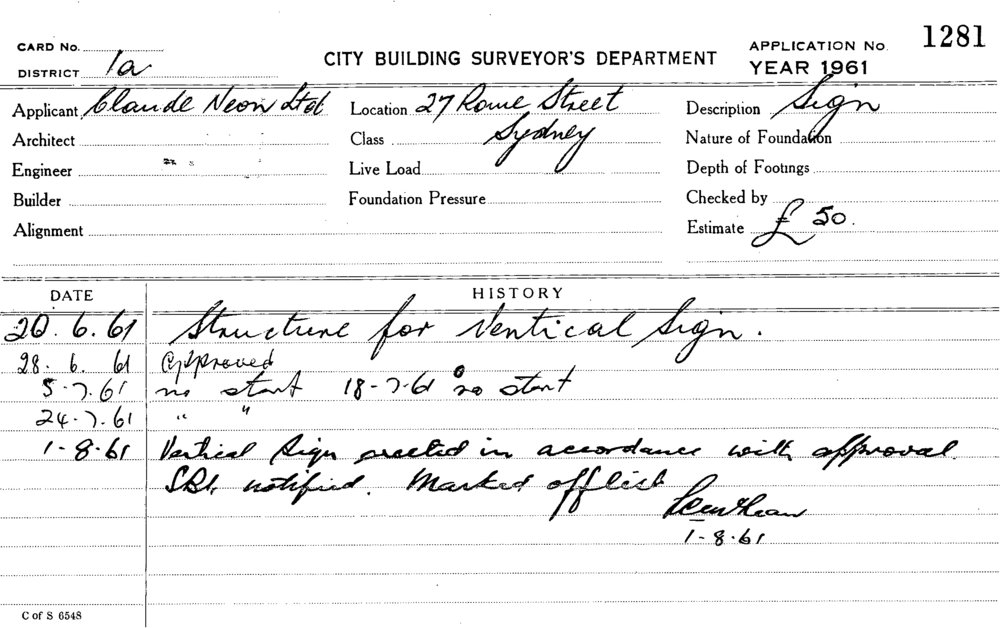 CARD No.
DISTRICT 1a
CITY BUILDING SURVEYOR'S DEPARTMENT
APPLICATION No. 1281
YEAR 1961
Applicant Claude Neon Ltd Location 27 Rowe Street Description Sign
Architect Class Sydney Nature of Foundation
Engineer Live Load Depth of Footings
Builder Foundation Pressure Checked by
Alignment Estimate £ 50.
DATE HISTORY
20.6.61 Structure for Vertical Sign.
28.6.61 Approved
5-7.61 no start 18-7-61 no start
24-7.61 " "
1-8-61 Vertical Sign erected in accordance with approval.
notified. Marked off list
1-8.61
C of S 6548